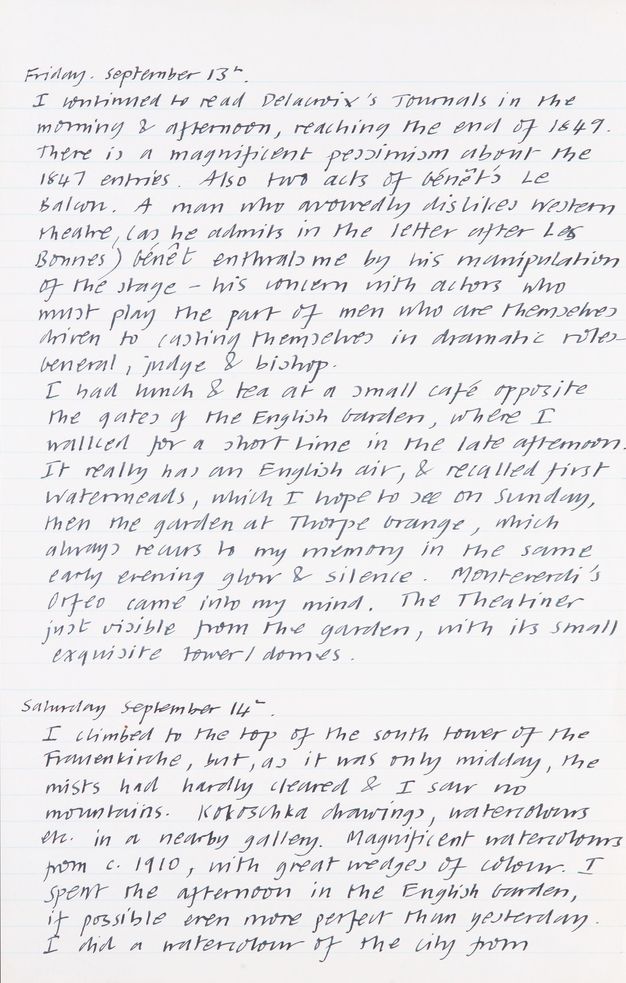 Friday. September 13th.
I continued to read Delacroix's Journals in the
morning & afternoon, reaching the end of 1849.
There is a magnificent pessimism about the
1847 entries. Also two acts of Genêt's Le
Balcon. A man who avowedly dislikes western
theatre, (as he admits in the letter after Les
Bonnes) Genêt enthrals me by his manipulation
of the stage – his concern with actors who
must play the part of men who are themselves
driven to casting themselves in dramatic roles
General, judge & bishop.
I had lunch & tea at a small café opposite
the gates of the English Garden, where I
walked for a short time in the late afternoon.
It really has an English air, & recalled first
Watermeads, which I hope to see on Sunday,
then the garden at Thorpe Grange, which
always recurs to my memory in the same
early evening glow & silence. Monteverdi's
Orfeo came into my mind. The Theatiner
just visible from the garden, with its small
exquisite tower/domes.
Saturday September 14th
I climbed to the top of the south tower of the
Frauenkirche, but, as it was only midday, the
mists had hardly cleared & I saw no
mountains. Kokoschka drawings, watercolours
etc. in a nearby gallery. Magnificent watercolours
from c. 1910, with great wedges of colour. I
spent the afternoon in the English Garden,
if possible even more perfect than yesterday.
I did a watercolour of the city from